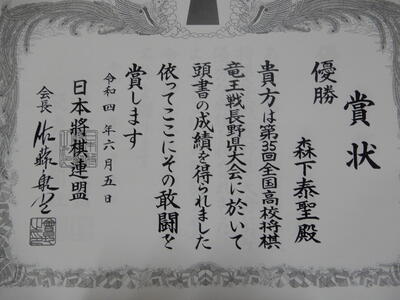 賞状
優勝
森下泰聖殿
貴方は第35回全国高校将棋
竜王戦長野県大会に於いて
頭書の成績を得られました
依ってここにその敢闘を
賞します
令和四年六月五日
日本將棋連盟
会長 佐藤康光